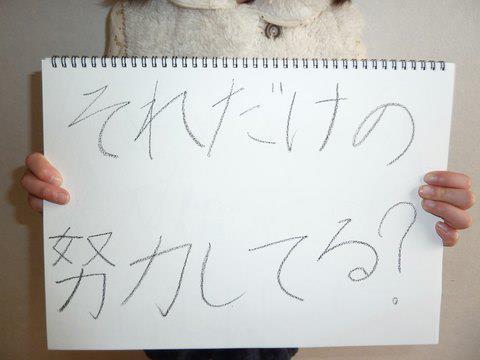 それだけの
努力してる?